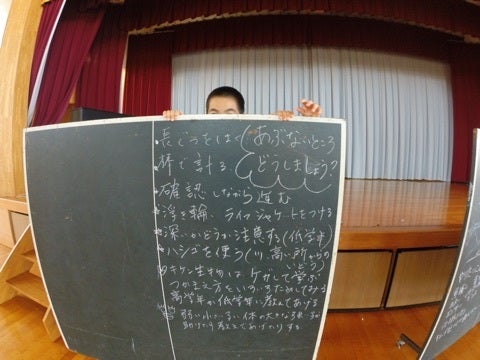 ・長ぐつをはく
あぶないところ
・棒で計る
どうしましょう?
・確認しながら進む
・浮き輪、ライフジャケットをつける
・深いかどうか注意する(低学年)
・ハシゴを使う(川、高い所からの
キケン生物は、ケガして学ぶ
つかまえ方をいろいろためしてみる
高学年が低学年に教えてあげる
弱い小さい体の大きな
助けたり教えてあげたりする